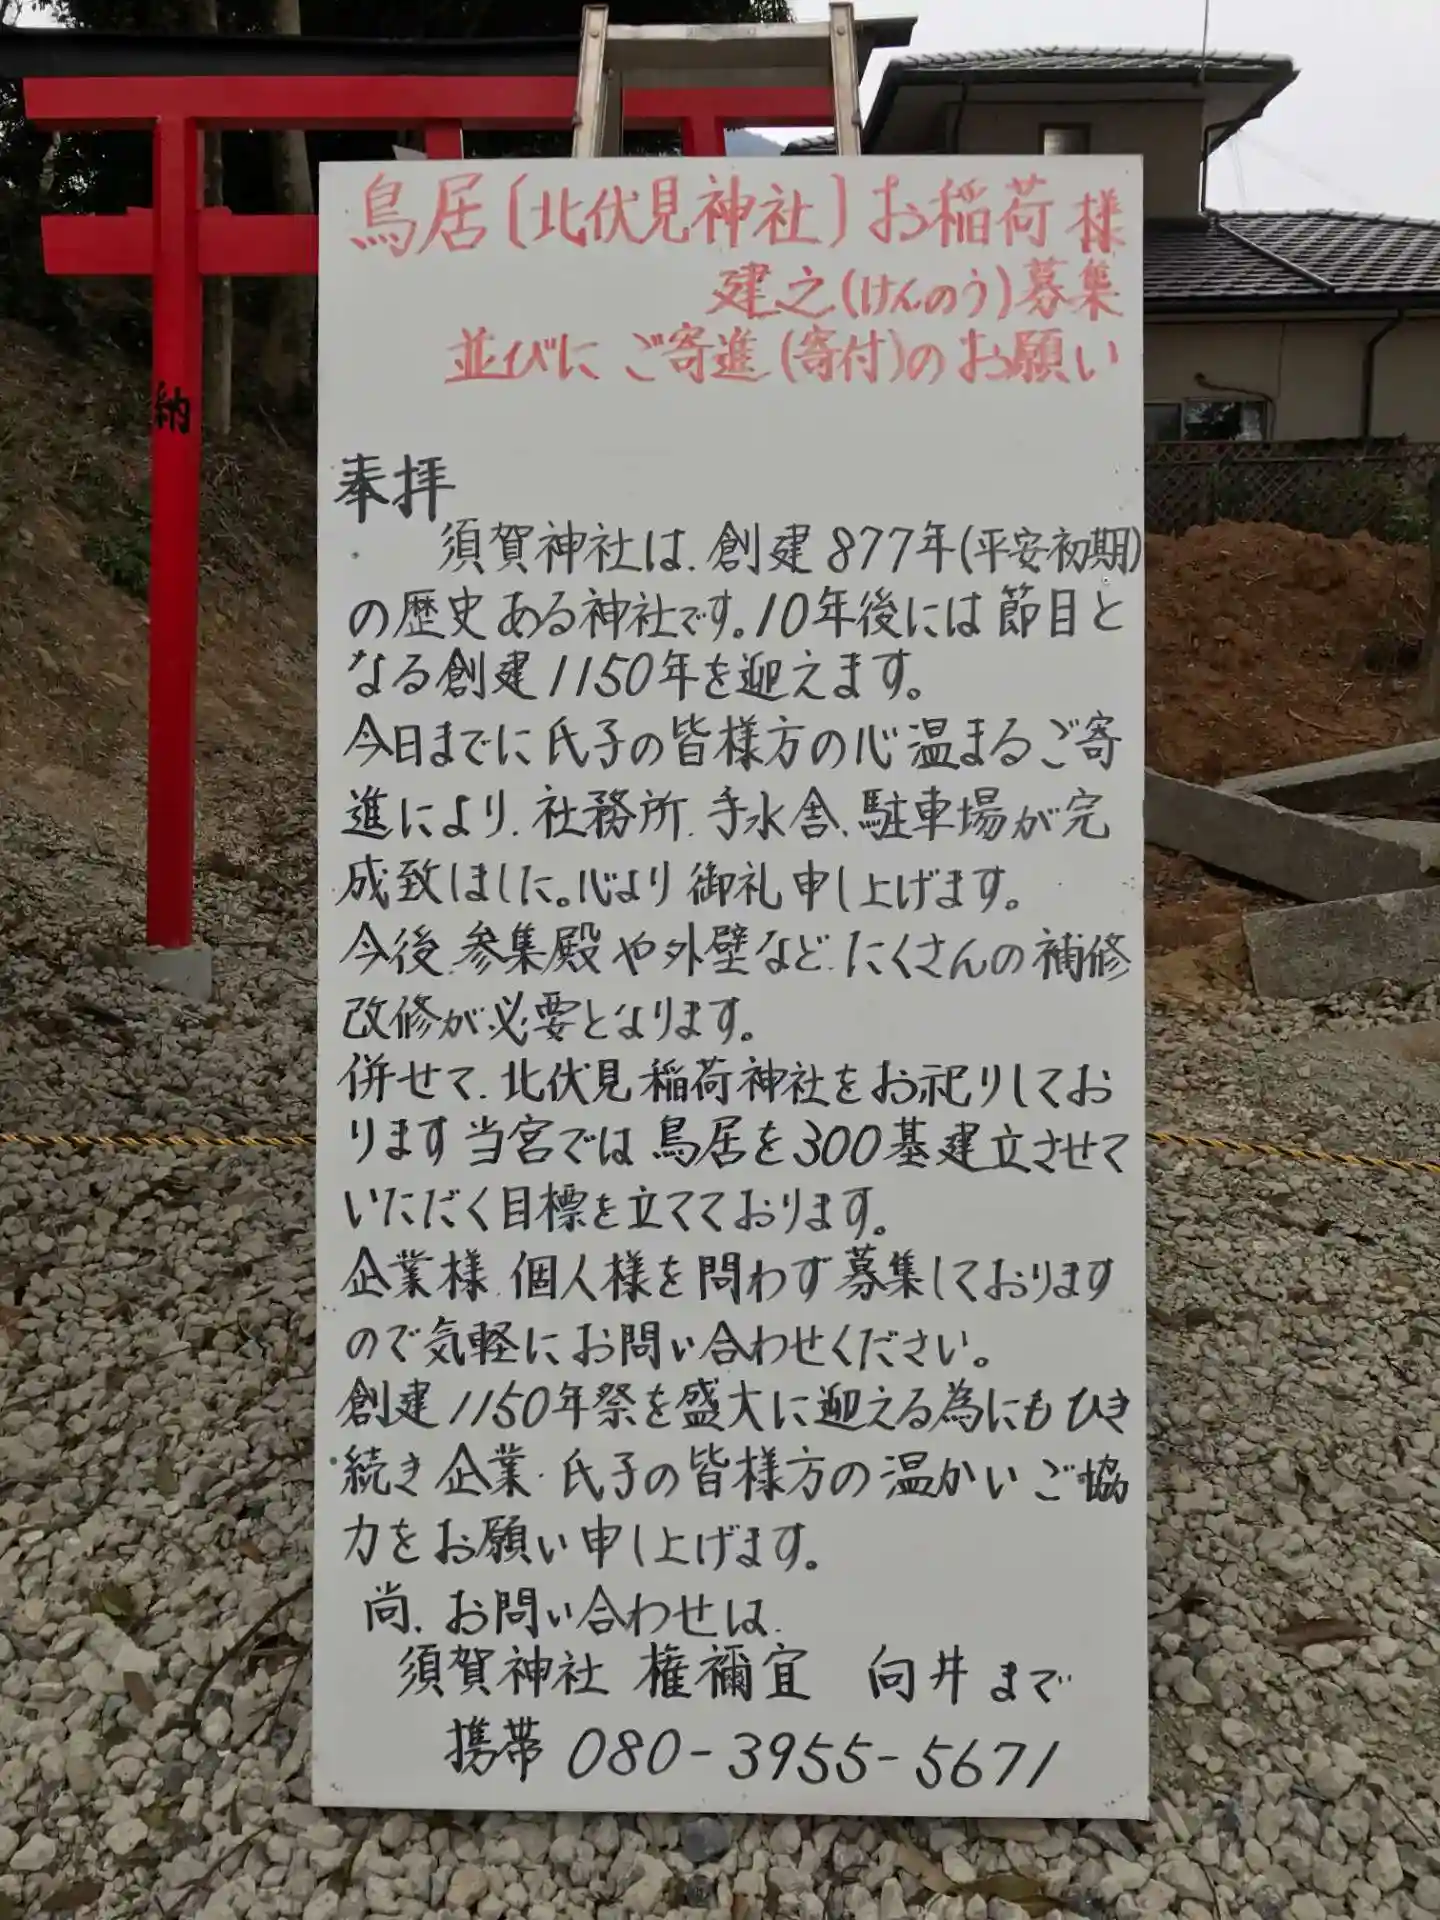 鳥居〔北伏見神社〕お稲荷様
建之(けんのう)募集
並びにご寄進(寄付)のお願い
奉拝
須賀神社は、創建877年(平安初期)
の歴史ある神社です。10年後には節目と
なる創建1150年を迎えます。
今日までに氏子の皆様方の心温まるご寄
進により、社務所、手水舎、駐車場が完
成致しました。心より御礼申し上げます。
今後、参集殿や外壁など、たくさんの補修
改修が必要となります。
併せて、北伏見稲荷神社をお祀りしてお
ります当宮では鳥居を300基建立させて
いただく目標を立てております。
企業様、個人様を問わず募集しております
ので気軽にお問い合わせください。
創建1150年祭を盛大に迎える為にもひき
続き企業・氏子の皆様方の温かいご協
力をお願い申し上げます。
尚、お問い合わせは、
須賀神社 権禰宜 向井まで
携帯 080-3955-5671
納